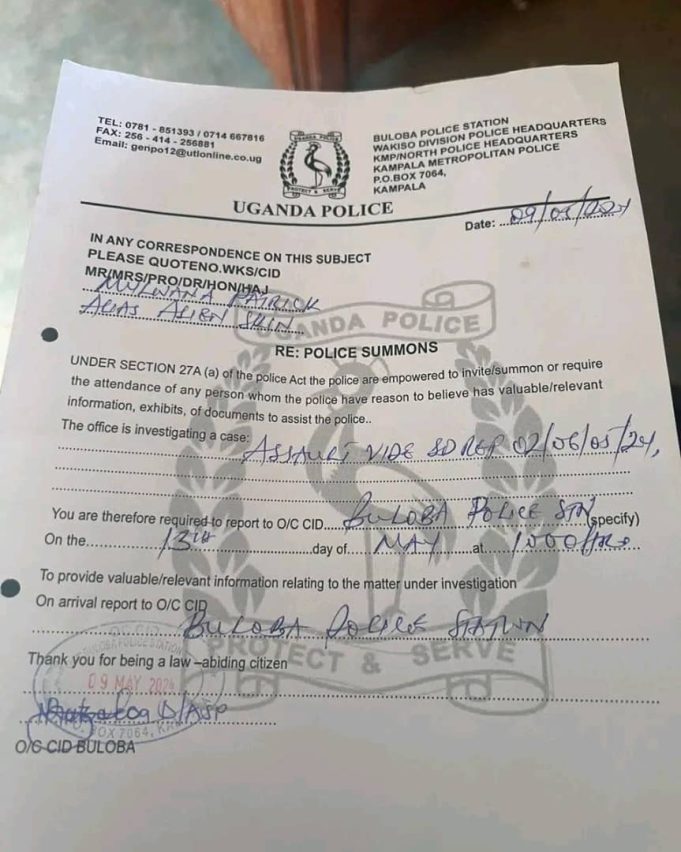 TEL: 0781 - 851393 / 0714 667816
FAX: 256 - 414 - 256881
Email: genpo12@utlonline.co.ug
UGANDA POLICE
PROTECT & SERVE
BULOBA POLICE STATION
WAKISO DIVISION POLICE HEADQUARTERS
KMP/NORTH POLICE HEADQUARTERS
KAMPALA METROPOLITAN POLICE
P.O.BOX 7064,
KAMPALA
UGANDA POLICE
Date: 09/05/2024
IN ANY CORRESPONDENCE ON THIS SUBJECT
PLEASE QUOTENO.WKS/CID
MR/MRS/PRO/DR/HON/HAJ
MULWANA PATRICK
ALIAS ALIEN SKIN
UGANDA POLICE
RE: POLICE SUMMONS
UNDER SECTION 27A (a) of the police Act the police are empowered to invite/summon or require
the attendance of any person whom the police have reason to believe has valuable/relevant
information, exhibits, of documents to assist the police..
The office is investigating a case: ASSAULT VIDE SD REF 02/06/05/24,
You are therefore required to report to O/C CID BULOBA POLICE STN (specify)
On the 13TH day of MAY at 1000/HRS
To provide valuable/relevant information relating to the matter under investigation
On arrival report to O/C CID
BULOBA POLICE STATION
PROTECT & SERVE
Thank you for being a law –abiding citizen
BULOBA POLICE STATION
09 MAY 2024
D/ASP
BOX 7064, KAMPALA
O/C CID BULOBA